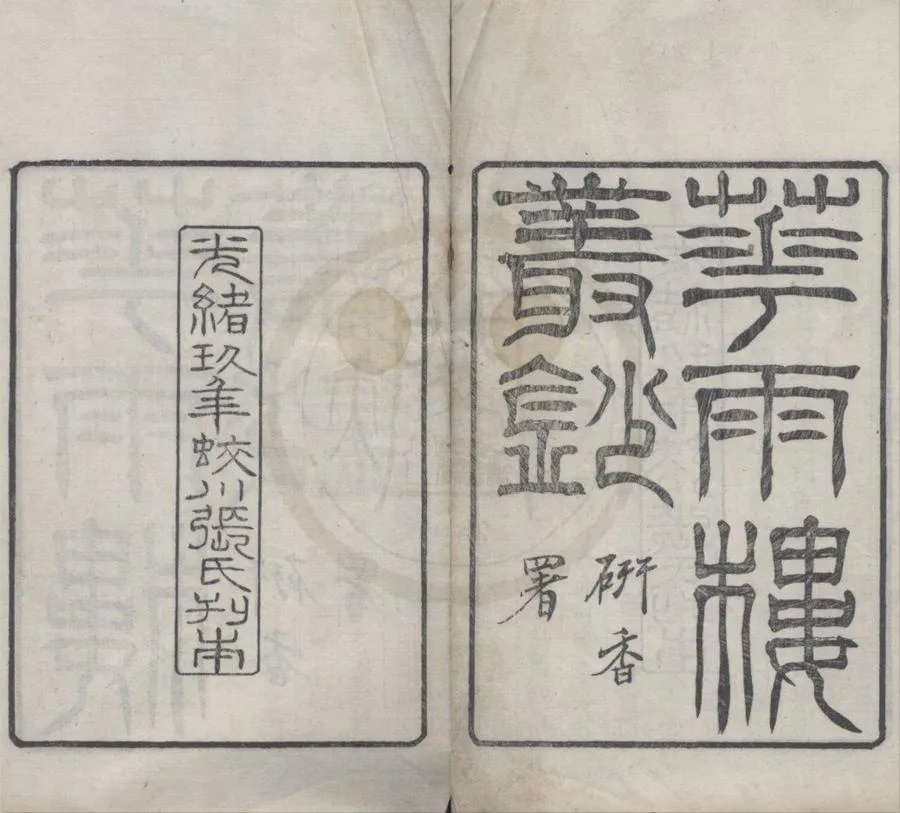 華雨樓
叢鈔
研香
署
光緒玖年蛟川張氏刊本